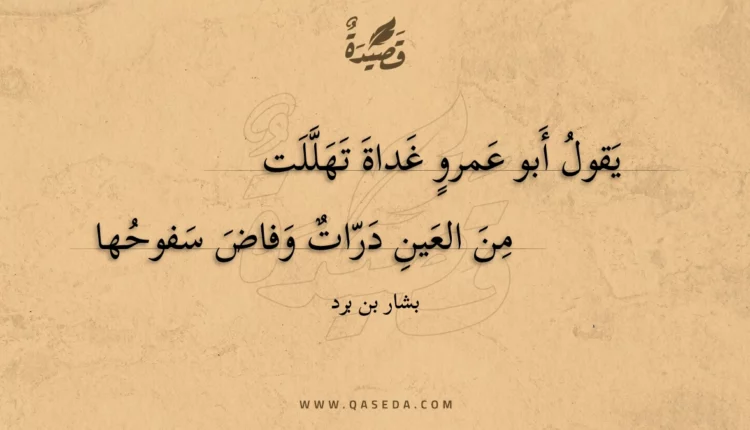 قَصِيدَةٌ
يَقولُ أَبو عَمروٍ غَداةَ تَهَلَّلَت
مِنَ العَينِ دَرّاتٌ وَفاضَ سَفوحُها
بشار بن برد
WWW.QASEDA.COM